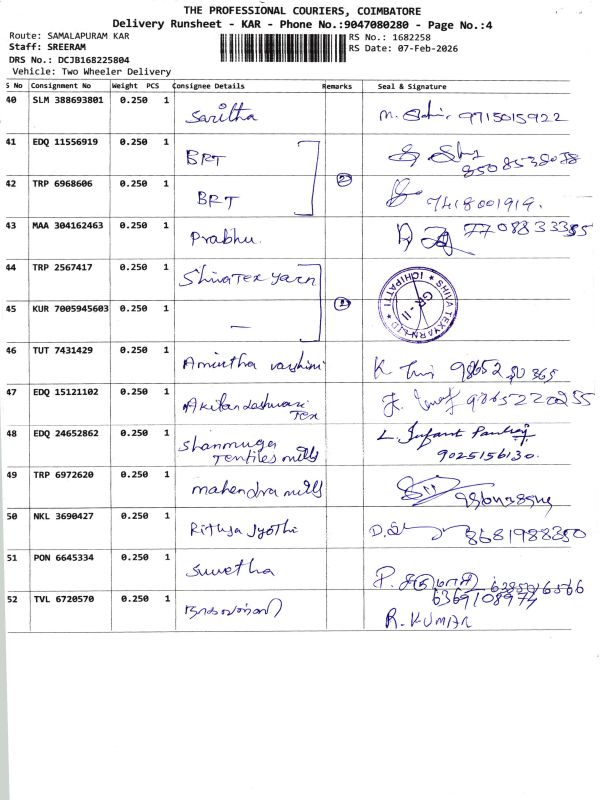 THE PROFESSIONAL COURIERS, COIMBATORE
Delivery Runsheet - KAR - Phone No.:9047080280 - Page No.:4
Route: SAMALAPURAM KAR
RS No.: 1682258
Staff: SREERAM
RS Date: 07-Feb-2026
DRS No.: DCJB168225804
Vehicle: Two Wheeler Delivery
S No Consignment No Weight PCS Consignee Details Remarks Seal & Signature
40 SLM 388693801 0.250 1 Saritha 9715015922
41 EDQ 11556919 0.250 1 BRT 8508538038
42 TRP 6968606 0.250 1 BRT 7418001919.
43 MAA 304162463 0.250 1 Prabhu. 7708833355
44 TRP 2567417 0.250 1 Shivatex yarn
SHIVA TEXYARN LTD
ICHIPATTI
GR - II
45 KUR 7005945603 0.250 1 —
46 TUT 7431429 0.250 1 Amirtha varshini 98652 50365
47 EDQ 15121102 0.250 1 Akilandeshwari Tex 9865220255
48 EDQ 24652862 0.250 1 Shanmuga Textiles mills L. Infant Pandiyan
9025156130.
49 TRP 6972620 0.250 1 mahendra mills
50 NKL 3690427 0.250 1 Rithya Jyothi 8681988350
51 PON 6645334 0.250 1 Suvetha
52 TVL 6720570 0.250 1 6369108974
R. KUMAR